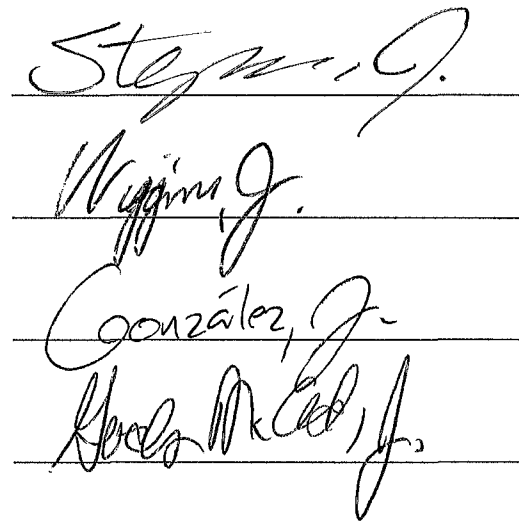 Stephens, J.
Wiggins, J.
González, J.
Gordon McCloud, J.